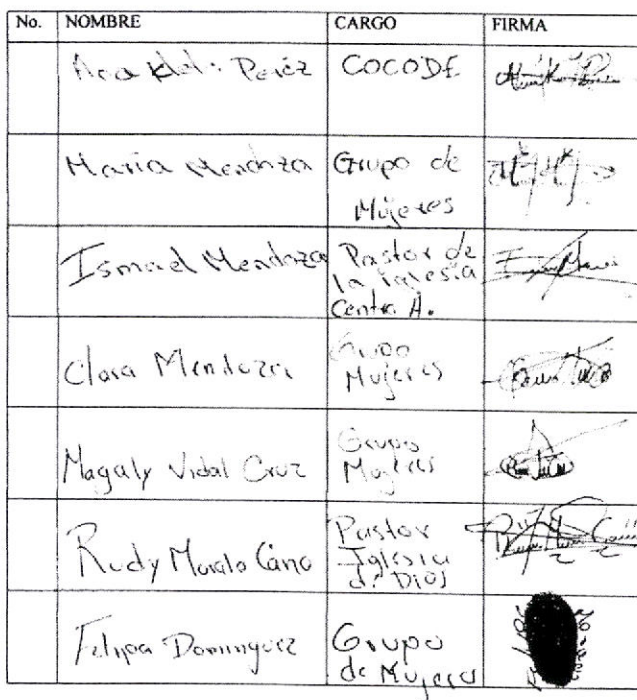 No. NOMBRE CARGO FIRMA
Perez COCODE
Maria Mendoza Grupo de
Mujeres
Ismael Mendoza Pastor de
la iglesia
Centro A.
Clara Mendoza Grupo
Mujeres
Magaly Vidal Cruz Grupo
Mujeres
Rudy Morales Cano Pastor
Iglesia
de Dios
Felipa Dominguez Grupo
de Mujeres